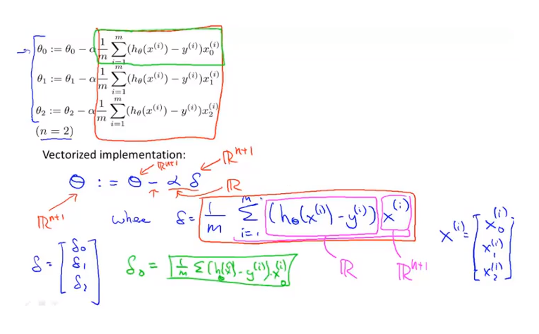 θ₀ := θ₀ − α 1/m ∑ᵢ₌₁ᵐ (h_θ(x⁽ⁱ⁾) − y⁽ⁱ⁾)x₀⁽ⁱ⁾
θ₁ := θ₁ − α 1/m ∑ᵢ₌₁ᵐ (h_θ(x⁽ⁱ⁾) − y⁽ⁱ⁾)x₁⁽ⁱ⁾
θ₂ := θ₂ − α 1/m ∑ᵢ₌₁ᵐ (h_θ(x⁽ⁱ⁾) − y⁽ⁱ⁾)x₂⁽ⁱ⁾
(n = 2)
Vectorized implementation:
ℝⁿ⁺¹ ℝⁿ⁺¹
θ := θ − α δ
ℝⁿ⁺¹ ℝ
where δ = 1/m ∑ᵢ₌₁ᵐ (h_θ(x⁽ⁱ⁾) − y⁽ⁱ⁾) x⁽ⁱ⁾
ℝ ℝⁿ⁺¹
x⁽ⁱ⁾ = [x₀⁽ⁱ⁾ x₁⁽ⁱ⁾ x₂⁽ⁱ⁾]
δ = [δ₀ δ₁ δ₂]
δ₀ = 1/m ∑ (h_θ(x⁽ⁱ⁾) − y⁽ⁱ⁾) · x₀⁽ⁱ⁾